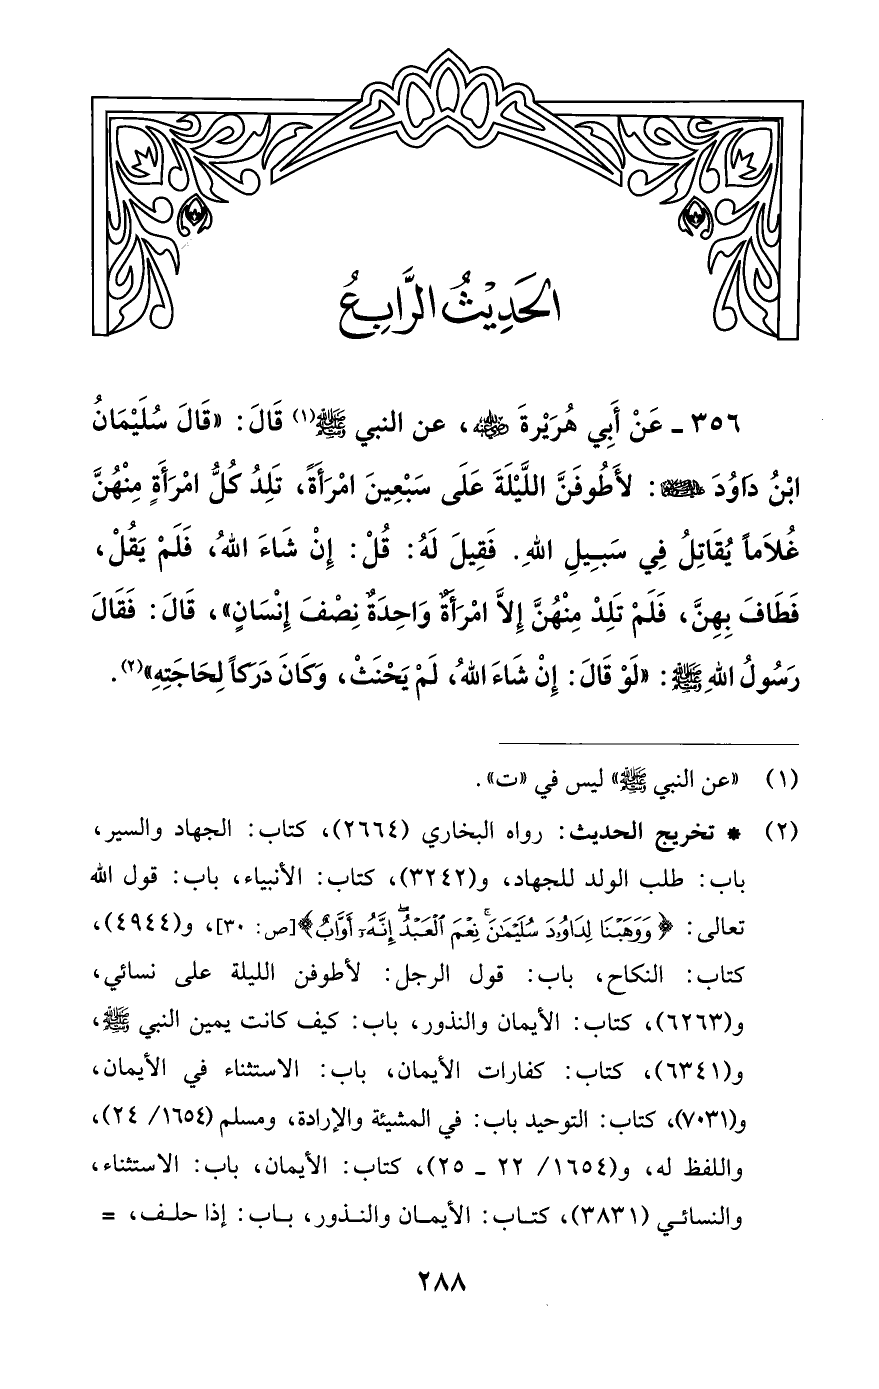 الحَدِيْثُ الرَّابِعُ
٣٥٦ ـ عَنْ أَبِي هُرَيْرةَ ﵁، عن النبي ﷺ(١) قَالَ: «قَالَ سُلَيْمَانُ
ابْنُ دَاوُدَ ﵉: لأَطُوفَنَّ اللَّيْلَةَ عَلَى سَبْعِينَ امْرَأَةً، تَلِدُ كُلُّ امْرَأَةٍ مِنْهُنَّ
غُلاَماً يُقَاتِلُ فِي سَبِيلِ اللهِ. فَقِيلَ لَهُ: قُلْ: إِنْ شَاءَ اللهُ، فَلَمْ يَقُلْ،
فَطَافَ بِهِنَّ، فَلَمْ تَلِدْ مِنْهُنَّ إِلاَّ امْرَأَةٌ وَاحِدَةٌ نِصْفَ إِنْسَانٍ»، قَالَ: فَقَالَ
رَسُولُ اللهِ ﷺ: «لَوْ قَالَ: إِنْ شَاءَ اللهُ، لَمْ يَحْنَثْ، وَكَانَ دَرَكاً لِحَاجَتِهِ»(٢).
(١) «عن النبي ﷺ» ليس في «ت».
(٢) * تخريج الحديث: رواه البخاري (٢٦٦٤)، كتاب: الجهاد والسير،
باب: طلب الولد للجهاد، و(٣٢٤٢)، كتاب: الأنبياء، باب: قول الله
تعالى: ﴿وَوَهَبْنَا لِدَاوُدَ سُلَيْمَٰنَۚ نِعْمَ ٱلْعَبْدُۖ إِنَّهُۥٓ أَوَّابٌ﴾[ص: ٣٠]، و(٤٩٤٤)،
كتاب: النكاح، باب: قول الرجل: لأطوفن الليلة على نسائي،
و(٦٢٦٣)، كتاب: الأيمان والنذور، باب: كيف كانت يمين النبي ﷺ،
و(٦٣٤١)، كتاب: كفارات الأيمان، باب: الاستثناء في الأيمان،
و(٧٠٣١)، كتاب: التوحيد باب: في المشيئة والإرادة، ومسلم (١٦٥٤/ ٢٤)،
واللفظ له، و(١٦٥٤/ ٢٢ ـ ٢٥)، كتاب: الأيمان، باب: الاستثناء،
والنسائي (٣٨٣١)، كتاب: الأيمان والنذور، باب: إذا حلف، =
٢٨٨